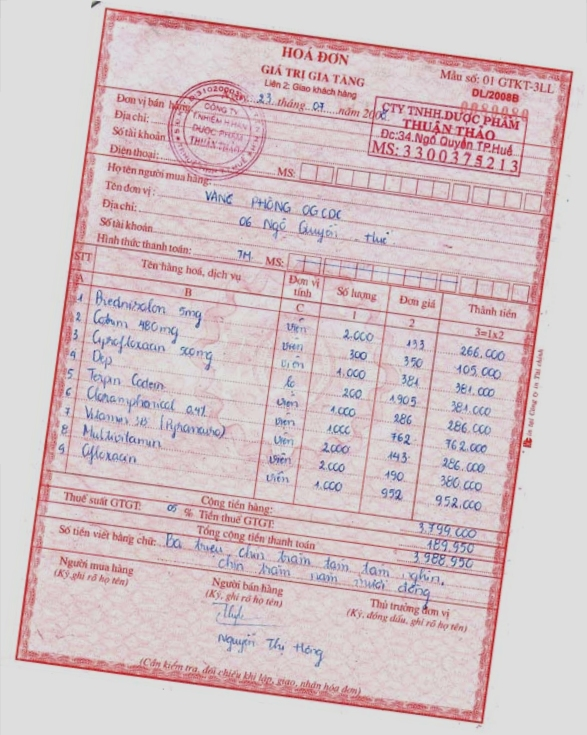 HOÁ ĐƠN
GIÁ TRỊ GIA TĂNG
Liên 2: Giao khách hàng
Mẫu số: 01 GTKT-3LL
DL/2008B
0080080
Ngày 23 tháng 07 năm 2008
CÔNG TY
TNHH
DƯỢC PHẨM
THUẬN THẢO
CTY TNHH.DƯỢC PHẨM
THUẬN THẢO
Đc:34.Ngô Quyền TP.Huế
MS: 3300375213
Đơn vị bán hàng:
Địa chỉ:
Số tài khoản
Điện thoại: MS:
Họ tên người mua hàng:
Tên đơn vị: VĂNG PHÒNG OGCDC
Địa chỉ: 06 Ngô Quyền - Huế
Số tài khoản
Hình thức thanh toán: TM MS:
STT Tên hàng hoá, dịch vụ Đơn vị tính Số lượng Đơn giá Thành tiền
A B C 1 2 3=1x2
1 Prednisolon 5mg viên 2.000 133 266.000
2 Cotrim 480mg viên 300 350 105.000
3 Ciprofloxacin 500mg viên 1.000 381 381.000
4 Dep lọ 200 1905 381.000
5 Terpin Codein viên 1.000 286 286.000
6 0.4% viên 1.000 762 762.000
7 Vitamin 3B viên 2.000 143 286.000
8 Multivitamin viên 2.000 190 380.000
9 Ofloxacin viên 1.000 952 952.000
Cộng tiền hàng: 3.799.000
Thuế suất GTGT: 05 % Tiền thuế GTGT: 189.950
Tổng cộng tiền thanh toán 3.988.950
Số tiền viết bằng chữ: Ba triệu, chín trăm tám tám nghìn,
chín trăm năm mươi đồng
Người mua hàng Người bán hàng Thủ trưởng đơn vị
(Ký, ghi rõ họ tên) (Ký, ghi rõ họ tên) (Ký, đóng dấu, ghi rõ họ tên)
Nguyễn Thị Hồng
(Cần kiểm tra, đối chiếu khi lập, giao, nhận hóa đơn)